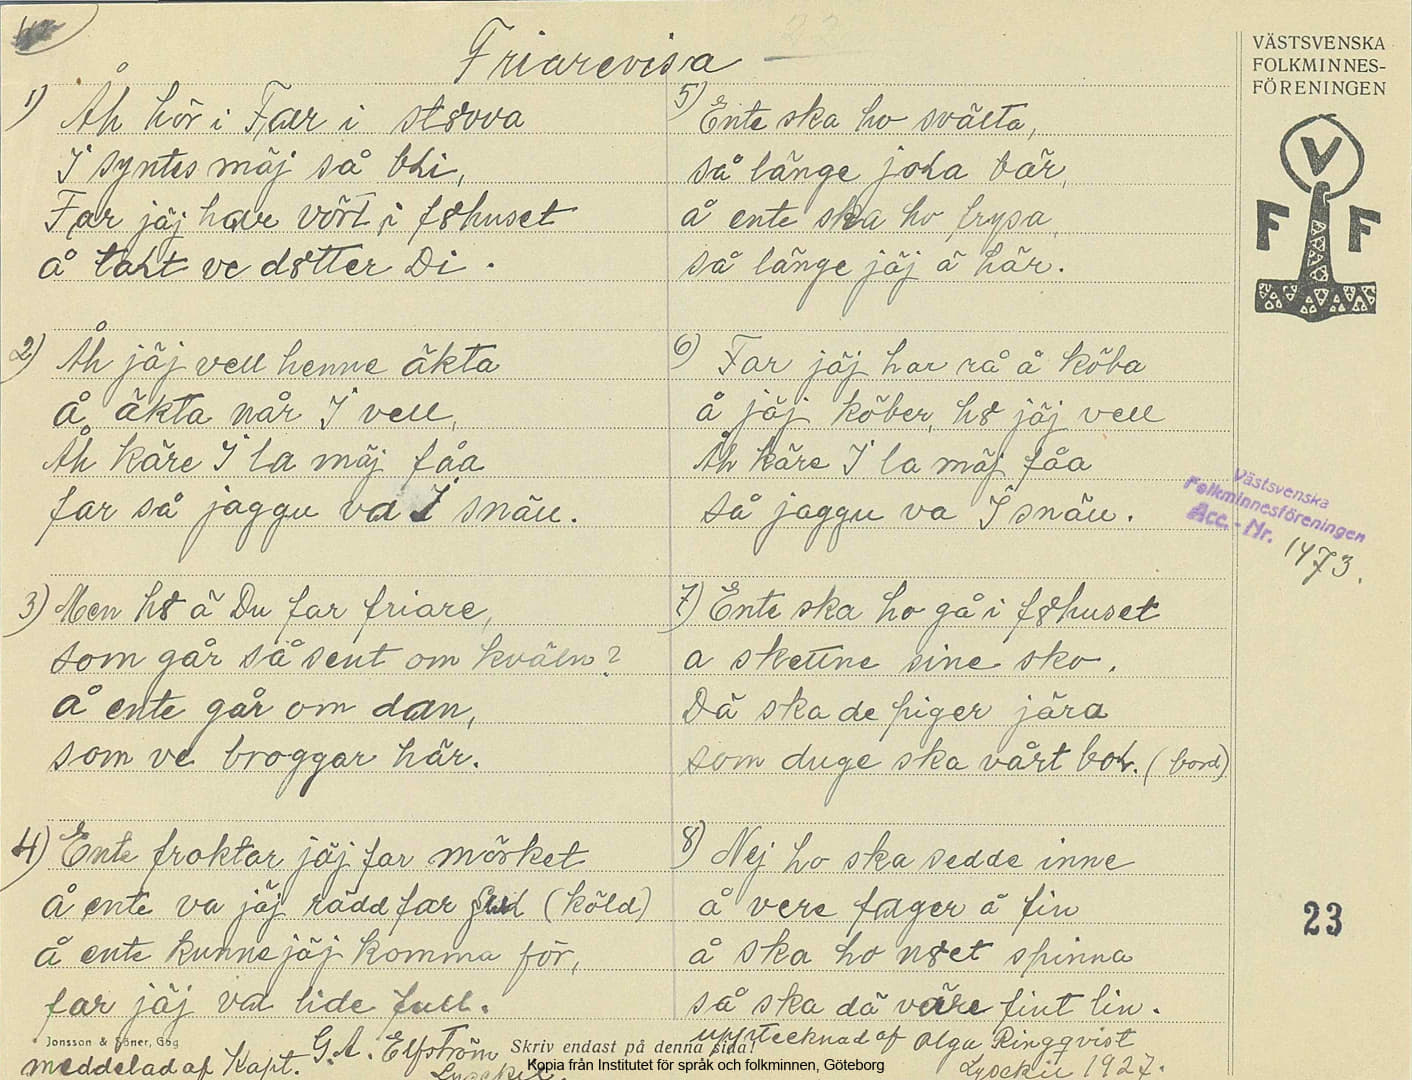 Friarevisa
1) Åh hör i Far i st8vva
I syntes mäj så bli,
Far jäj have vört i f8huset
å talt ve d8tter Di.
2) Åh jäj vell henne äkta
å äkta når I vell,
Åh käre I la mäj fåa
far så jaggu va I snäll.
3) Men h8 ä Du far friare,
som går så sent om kväln?
å ente går om dan,
som ve broggar här.
4) Ente froktar jäj far mörket
å ente va jäj rädd far (köld)
å ente kunne jäj komma för,
far jäj va lide full.
5) Ente ska ho svälta,
så länge jola bär,
å ente ska ho frysa,
så länge jäj ä här.
6) Far jäj har rå å köba
å jäj köber, h8 jäj vell
Åh käre I la mäj fåa
så jaggu va I snäll.
7) Ente ska ho gå i f8huset
a skettne sine sko.
Dä ska de piger jära
som duge ska vårt bol. (bord)
8) Nej ho ska sedde inne
å vere fager å fin
å ska ho n8et spinna
så ska dä väre fint lin.
Jonsson & Söner, Gbg
Skriv endast på denna sida!
meddelad af Kapt. G. A. Elfström
Lysekil.
upptecknad af Olga Ringqvist
Lysekil 1927.
Kopia från Institutet för språk och folkminnen, Göteborg
VÄSTSVENSKA
FOLKMINNES-
FÖRENINGEN
V
F F
Västsvenska
Folkminnesföreningen
Acc.-Nr. 1473.
23